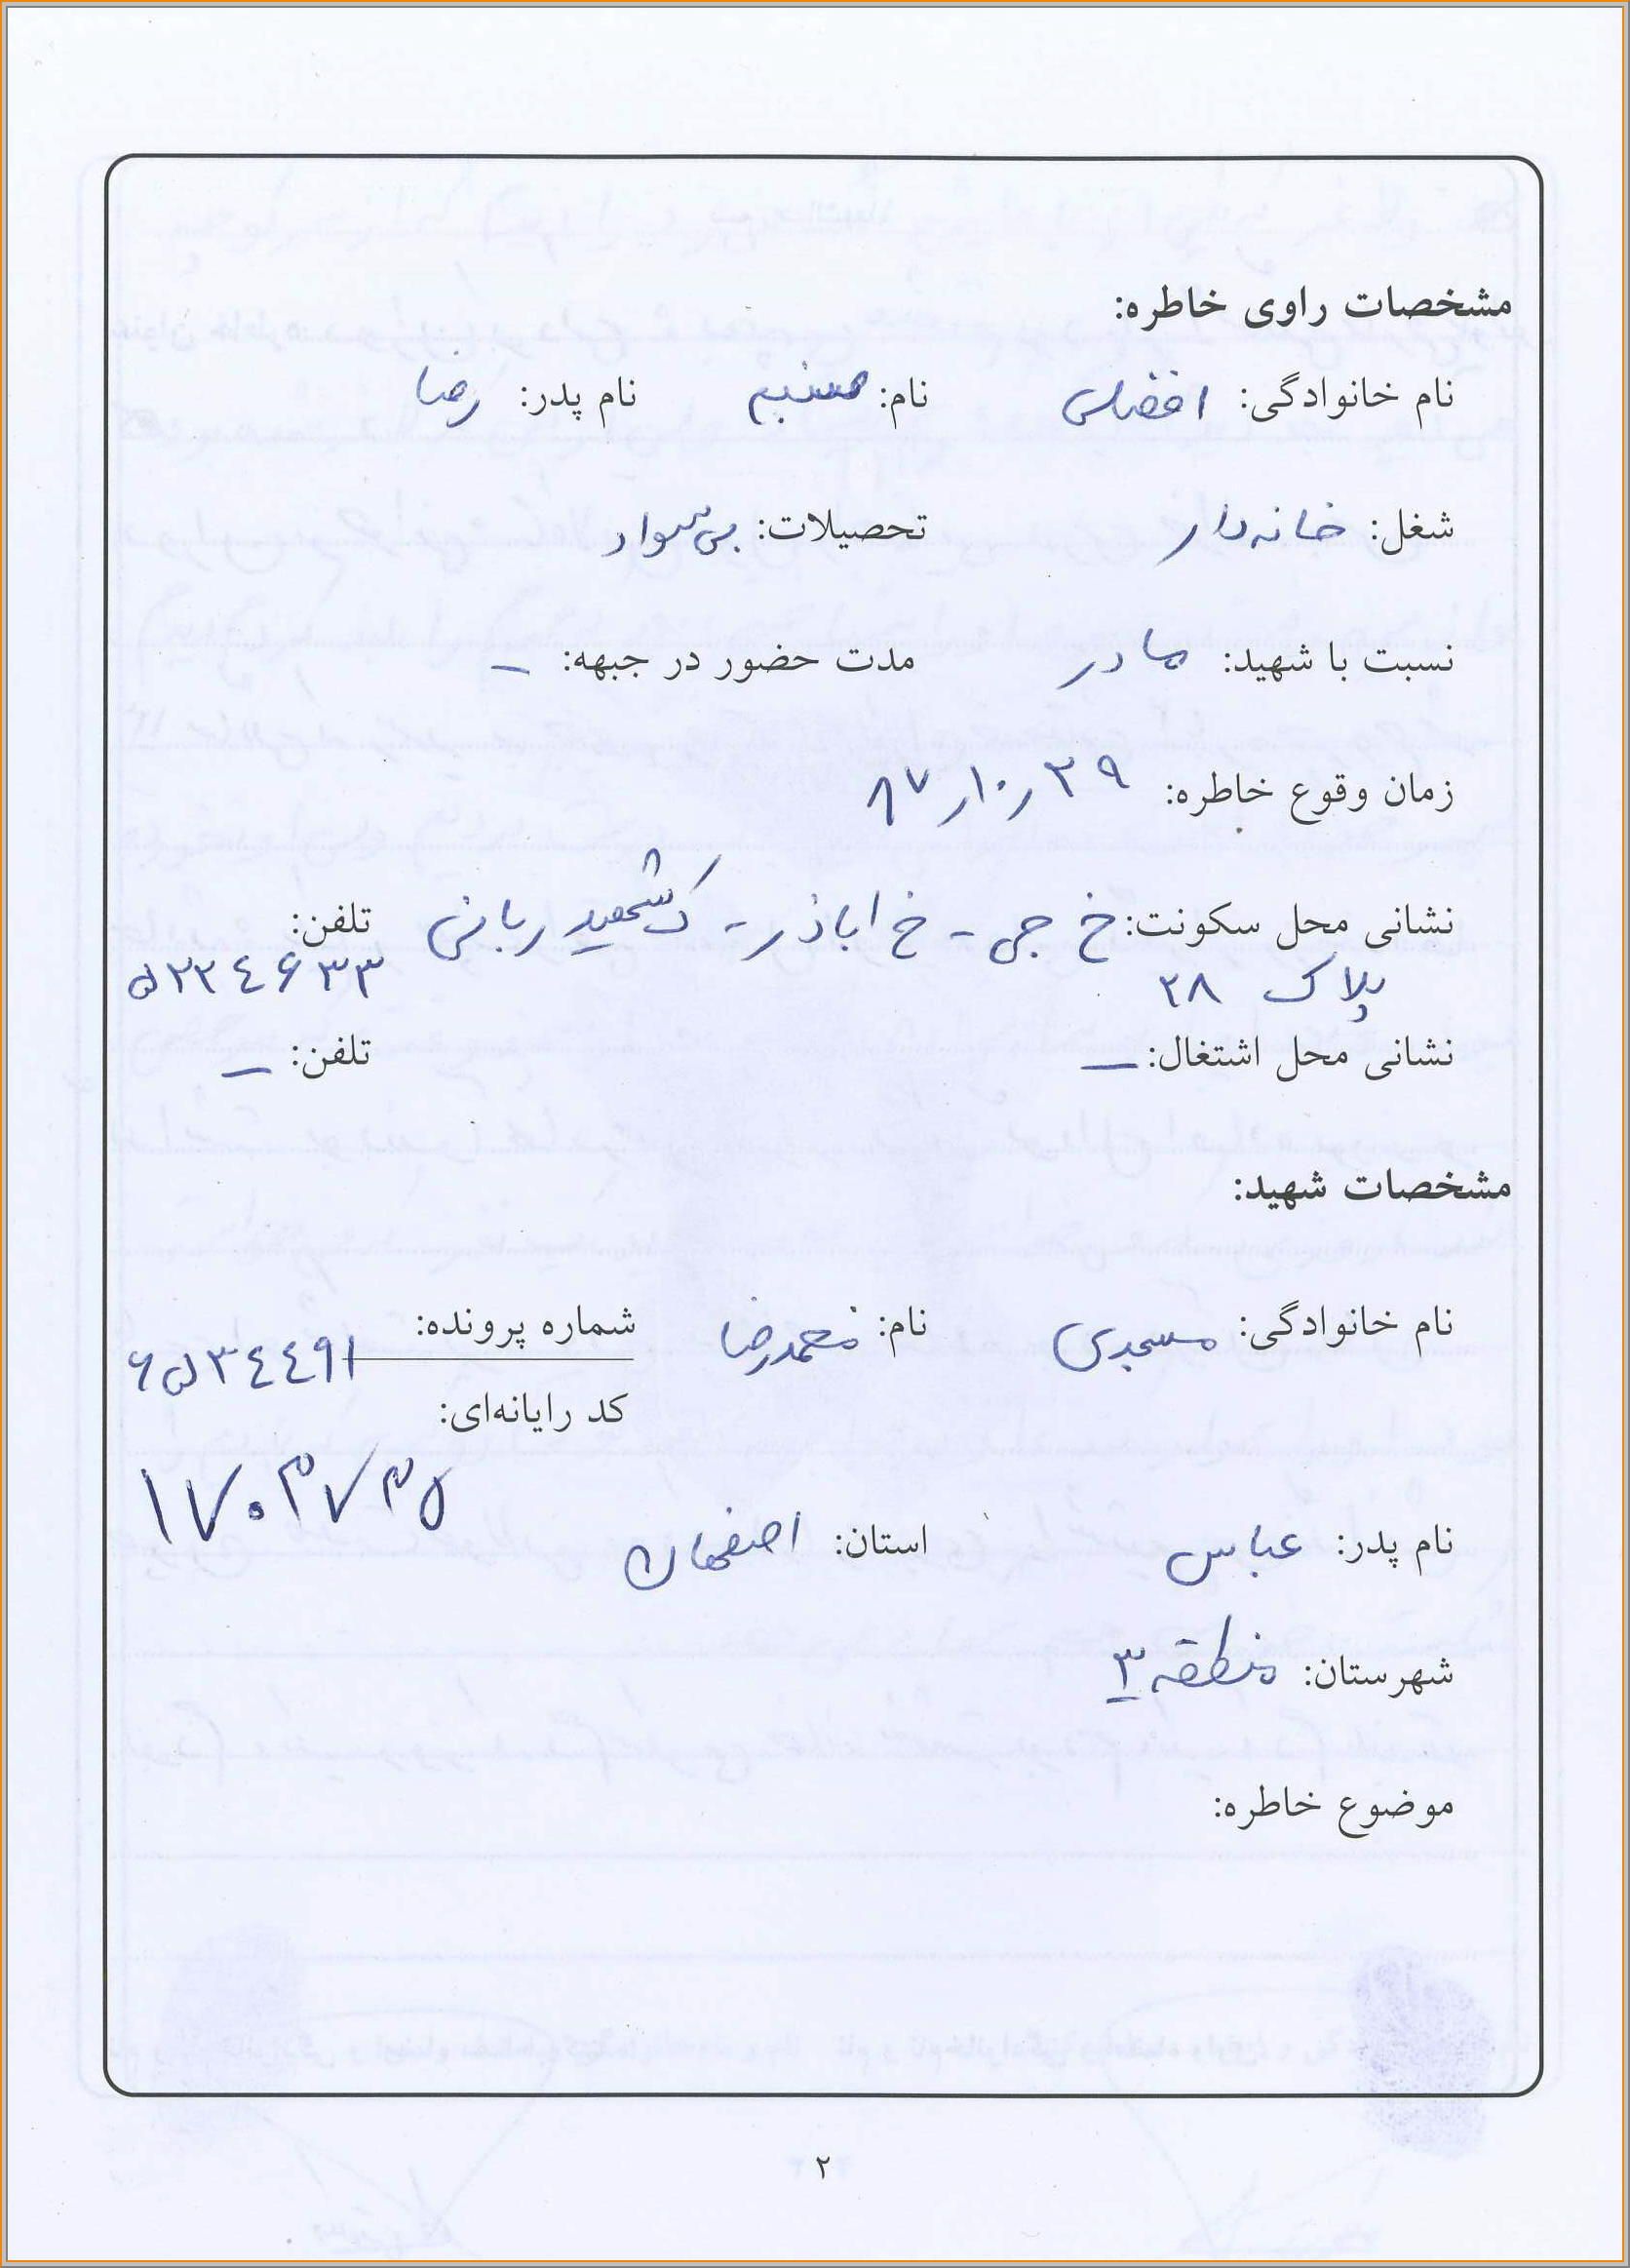 مشخصات راوی خاطره:
نام خانوادگی: افضلی نام: نام پدر: رضا
شغل: خانه‌دار تحصیلات: بی‌سواد
نسبت با شهید: مادر مدت حضور در جبهه: ـ
زمان وقوع خاطره: ۸۷/۱۰/۲۹
نشانی محل سکونت: خ جی - خ اباذر - ک شهید ربانی تلفن:
پلاک ۲۸ ۵۲۲۴۶۳۳
نشانی محل اشتغال: ـ تلفن: ـ
مشخصات شهید:
نام خانوادگی: مسجدی نام: محمدرضا شماره پرونده:
۶۵۳۴۴۹۱
کد رایانه‌ای:
۱۷۰۳۷۳۵
نام پدر: عباس استان: اصفهان
شهرستان: منطقه ۳
موضوع خاطره:
۲